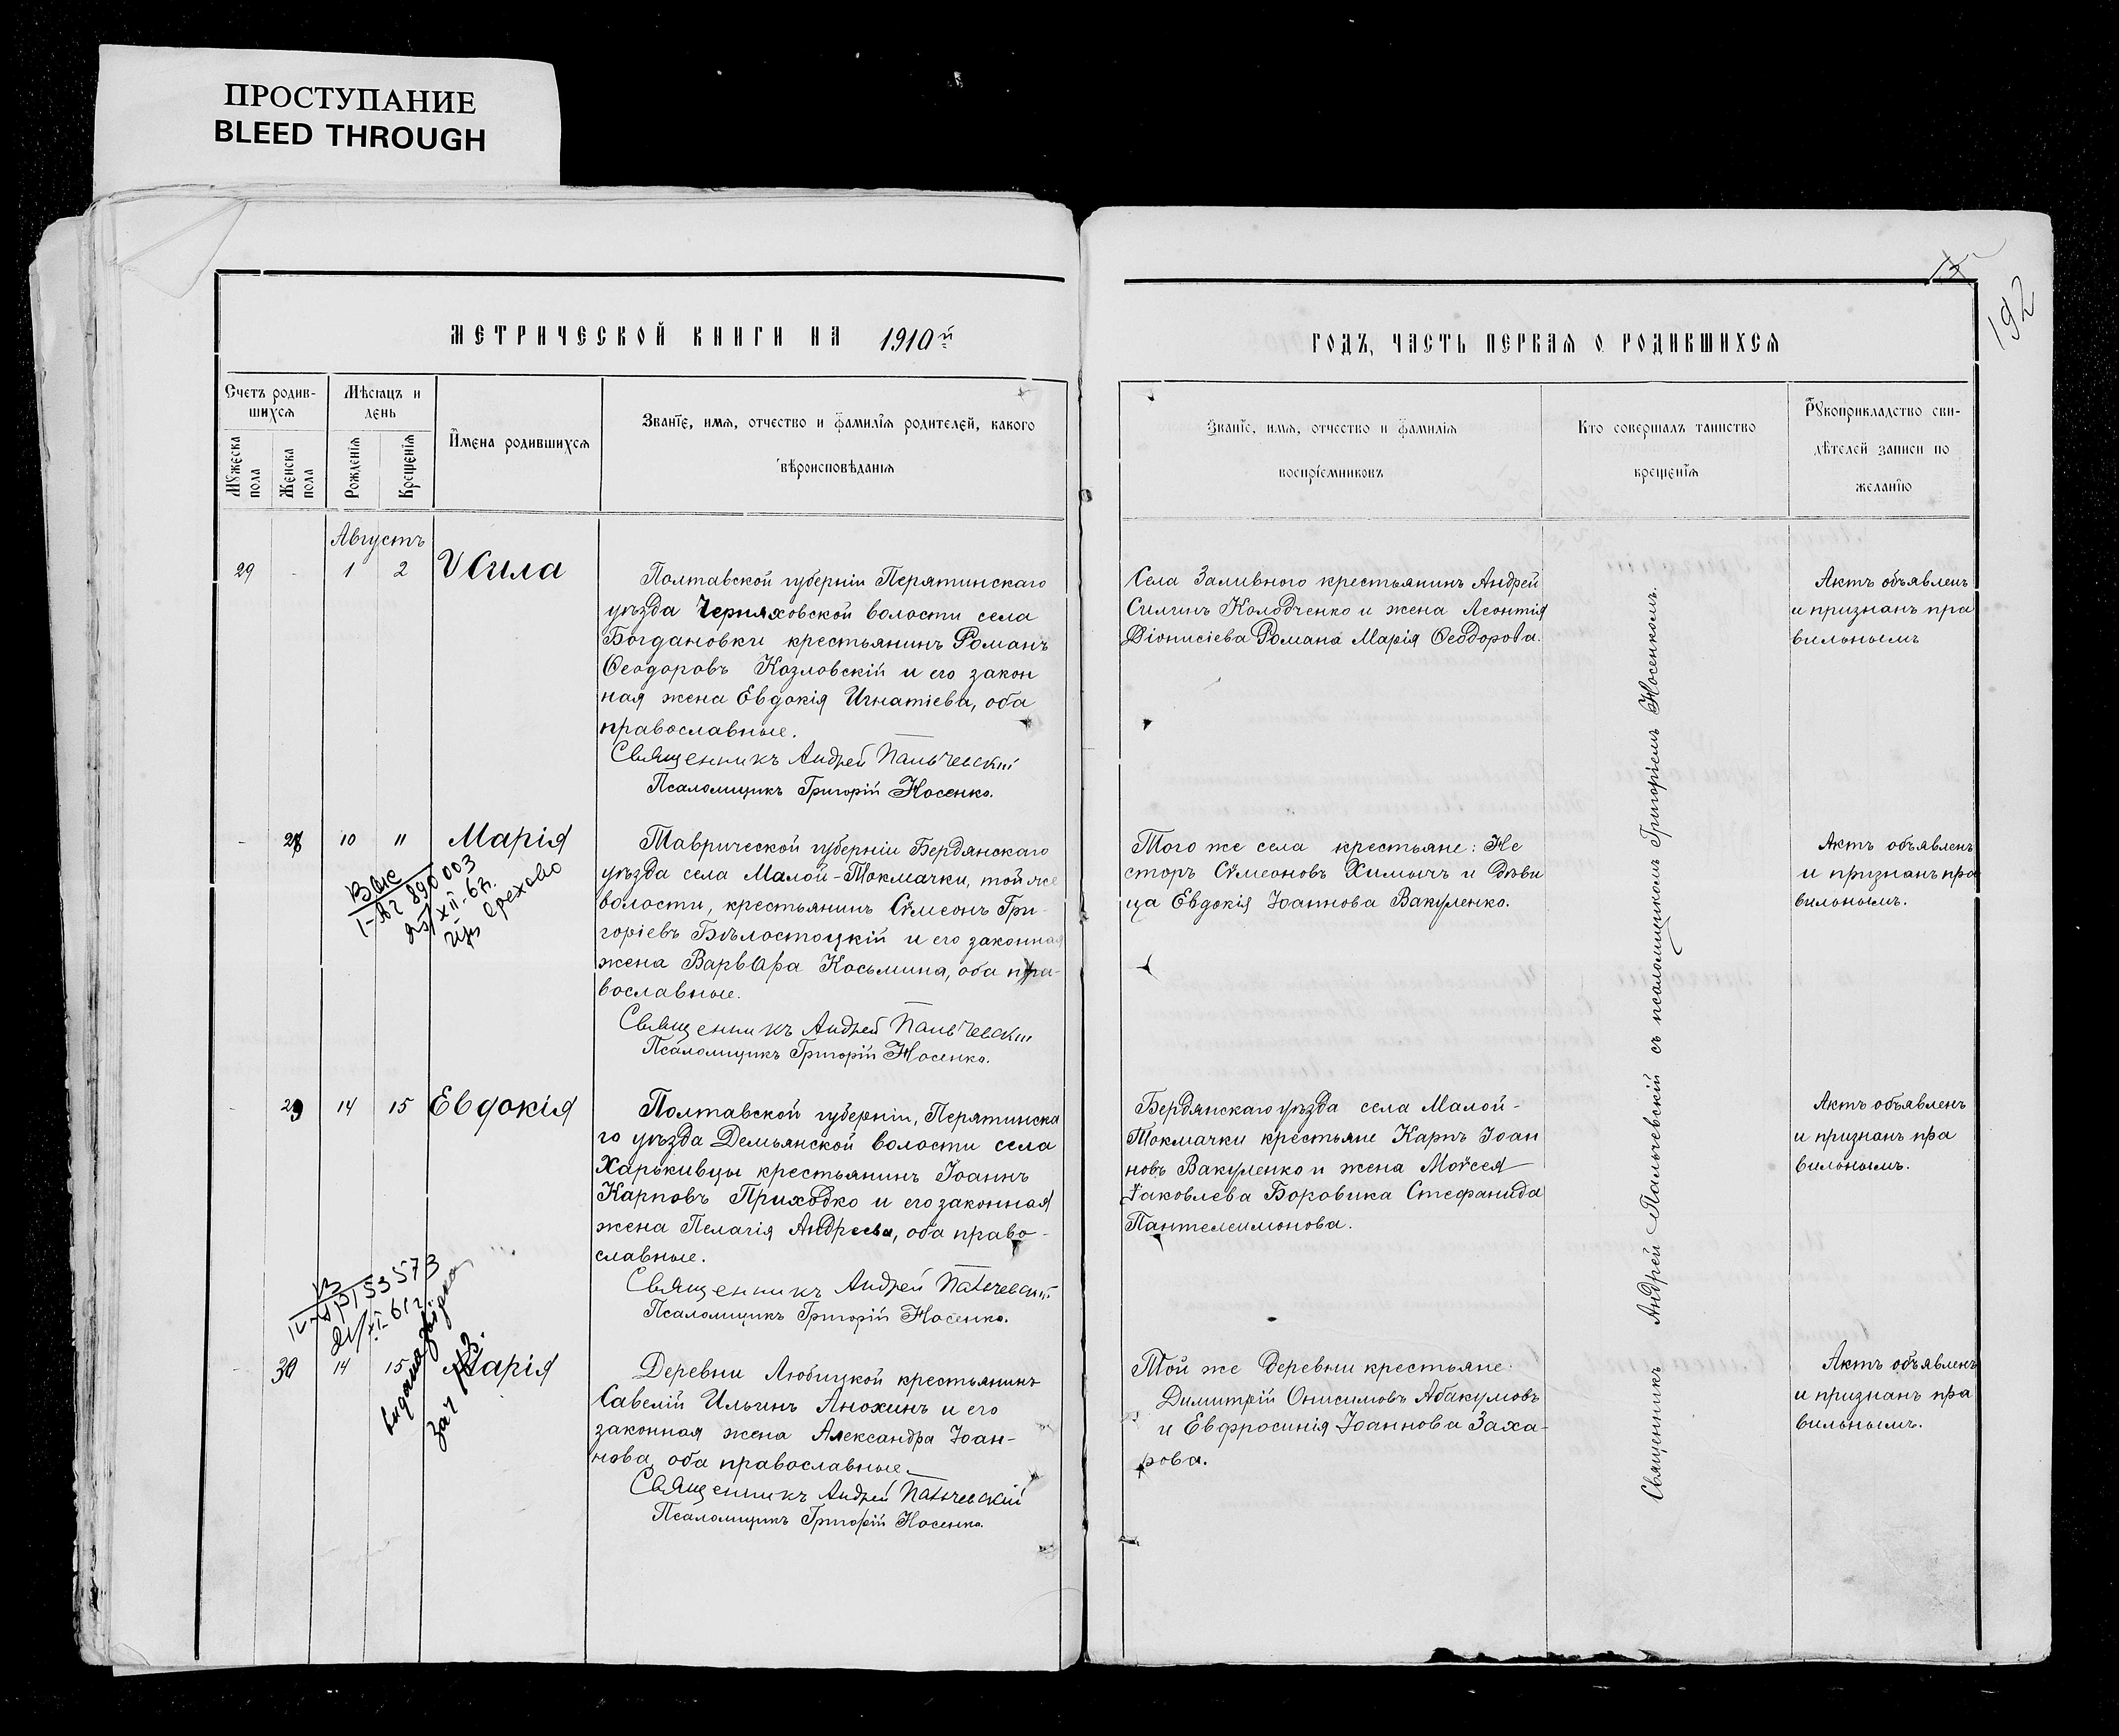 ПРОСТУПАНИЕ
BLEED THROUGH
192
МЕТРИЧЕСКОЙ КНИГИ НА 1910й
ГОДЪ, ЧАСТЬ ПЕРВАЯ О РОДИВШИХСЯ
Счетъ родив-
шихся
Мужеска
пола
Женска
пола
Мѣсяцъ и
день
Рожденія
Крещенія
Имена родившихся
Званіе, имя, отчество и фамилія родителей, какого
вѣроисповѣданія
Званіе, имя, отчество и фамилія
воспріемниковъ
Кто совершалъ таинство
крещенія
Рукоприкладство сви-
дѣтелей записи по
желанію
Августъ
29 - 1 2
Полтавской губерніи Пирятинскаго
уѣзда Черняховской волости села
Богдановки крестьянинъ Романъ
Ѳеодоровъ Козловскій и его закон
ная жена Евдокія Игнатіева, оба
православные.
Священникъ Андрей Пальчевскій
Псаломщикъ Григорій Носенко.
Села Заливного крестьянинъ Андрей
Силинъ Колодченко и жена Леонтія
Діонисіева Романа Марія Ѳеодорова.
Актъ объявленъ
и признанъ пра
вильнымъ
- 28 10 11 Марія
890003
Орехово
Таврической губерніи Бердянскаго
уѣзда села Малой-Токмачки, той же
волости, крестьянинъ Сѵмеонъ Гри-
горіевъ Бѣлостоцкій и его законная
жена Варвара Косьмина, оба пра-
вославные.
Священникъ Андрей Пальчевскій
Псаломщикъ Григорій Носенко.
Того же села крестьяне: Не
сторъ Сѵмеоновъ Химычъ и дѣви
ца Евдокія Іоаннова Вакуленко.
Актъ объявленъ
и признанъ пра
вильнымъ.
- 29 14 15 Евдокія
Полтавской губерніи, Пирятинска
го уѣзда Демьянской волости села
Харькивцы крестьянинъ Іоаннъ
Карповъ Приходко и его законная
жена Пелагія Андреева, оба право-
славные.
Священникъ Андрей Пальчевскій
Псаломщикъ Григорій Носенко.
Бердянскаго уѣзда села Малой-
Токмачки крестьяне Карпъ Іоан
новъ Вакуленко и жена Моѵсея
Іаковлева Боровика Стефанида
Пантелеимонова.
Актъ объявленъ
и признанъ пра
вильнымъ.
- 30 14 15 Марія
Деревни Любицкой крестьянинъ
Савелій Ильинъ Анохинъ и его
законная жена Александра Іоан-
нова, оба православные.
Священникъ Андрей Пальчевскій
Псаломщикъ Григорій Носенко.
Той же деревни крестьяне:
Димитрій Онисимовъ Абакумовъ
и Евфросинія Іоаннова Заха-
рова.
Актъ объявленъ
и признанъ пра
вильнымъ.
Священникъ Андрей Пальчевскій съ псаломщикомъ Григоріемъ Носенкомъ.